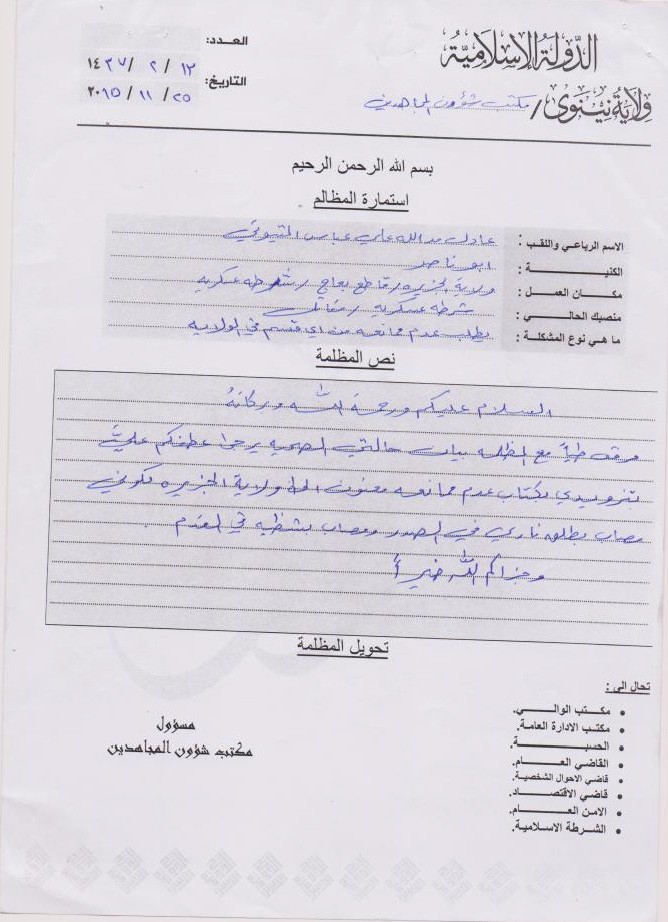 الدولة الإسلامية
ولاية نينوى / مكتب شؤون المجاهدين
العدد:
١٣ / ٢ / ١٤٣٧
التاريخ:
٢٥ / ١١ / ٢٠١٥
بسم الله الرحمن الرحيم
استمارة المظالم
الاسم الرباعي واللقب : عادل عبدالله علي عباس
الكنية : ابو ناصر
مكان العمل : ولاية الجزيره / قاطع بعاج / شرطه عسكريه
منصبك الحالي : شرطه عسكريه / مقاتل
ما هي نوع المشكلة : يطلب عدم ممانعه من اي قسم في الولايه
نص المظلمة
السلام عليكم ورحمة الله وبركاته
مرفق طياً مع المظلمه بيان حالتي الصحيه يرجى عطفكم عليَّ
تزويدي بكتاب عدم ممانعه معنون الى ولاية الجزيره كوني
مصاب بطلق ناري في الصدر ومصاب بشظيه في القدم .
وجزاكم الله خيراً
تحويل المظلمة
تحال الى :
• مكتب الوالي.
• مكتب الادارة العامة.
• الحسبة.
• القاضي العام.
• قاضي الاحوال الشخصية.
• قاضي الاقتصاد.
• الامن العام.
• الشرطة الاسلامية.
مسؤول
مكتب شؤون المجاهدين